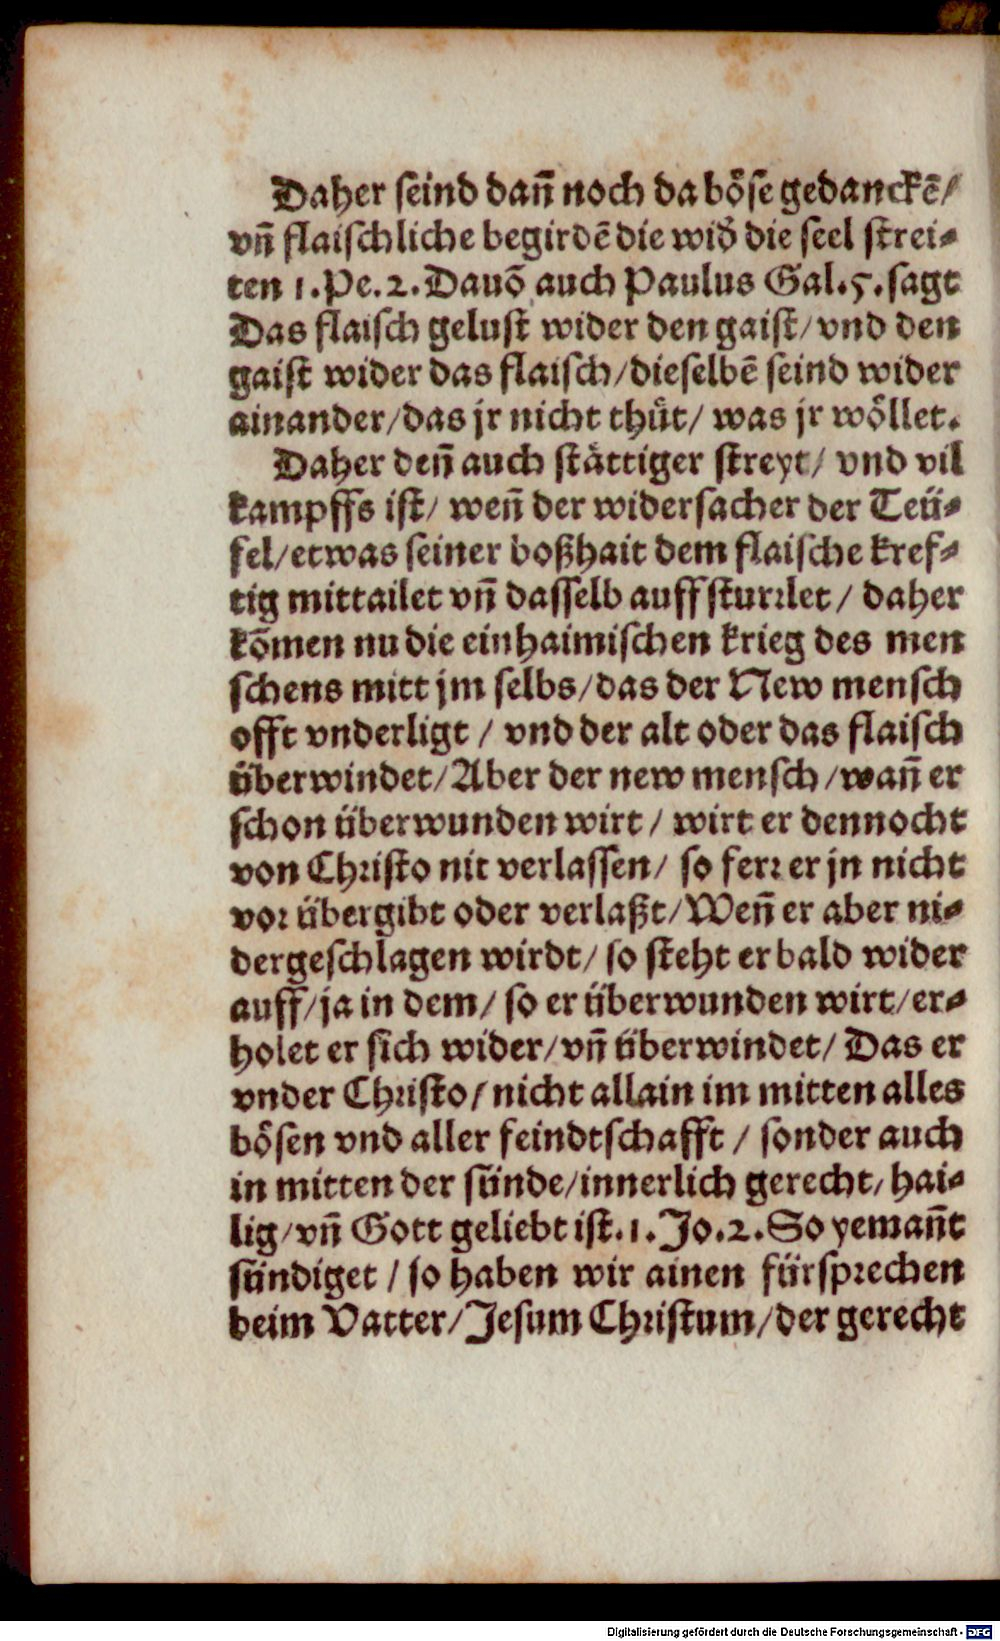 Daher seind dañ noch da böse gedanckē/
vñ flaischliche begirdē die wid̃ die seel strei-
ten 1. Pe. 2. Dauō auch Paulus Gal. 5. sagt
Das flaisch gelust wider den gaist/ vnd den
gaist wider das flaisch/ dieselbē seind wider
ainander/ das jr nicht thüt/ was jr wöllet.
Daher deñ auch stättiger streyt/ vnd vil
kampffs ist/ weñ der widersacher der Teü-
fel/ etwas seiner boßhait dem flaische kref-
tig mittailet vñ dasselb auff sturrlet/ daher
kōmen nu die einhaimischen krieg des men
schens mitt jm selbs/ das der New mensch
offt vnderligt/ vnd der alt oder das flaisch
überwindet/ Aber der new mensch/ wañ er
schon überwunden wirt/ wirt er dennocht
von Christo nit verlassen/ so ferr er jn nicht
vor übergibt oder verlaßt/ Weñ er aber ni-
dergeschlagen wirdt/ so steht er bald wider
auff/ ja in dem/ so er überwunden wirt/ er-
holet er sich wider/ vñ überwindet/ Das er
vnder Christo/ nicht allain im mitten alles
bösen vnd aller feindtschafft/ sonder auch
in mitten der sünde/ innerlich gerecht/ hai-
lig/ vñ Gott geliebt ist. 1. Jo. 2. So yemañt
sündiget/ so haben wir ainen fürsprechen
beim Vatter/ Jesum Christum/ der gerecht
Digitalisierung gefördert durch die Deutsche Forschungsgemeinschaft - DFG